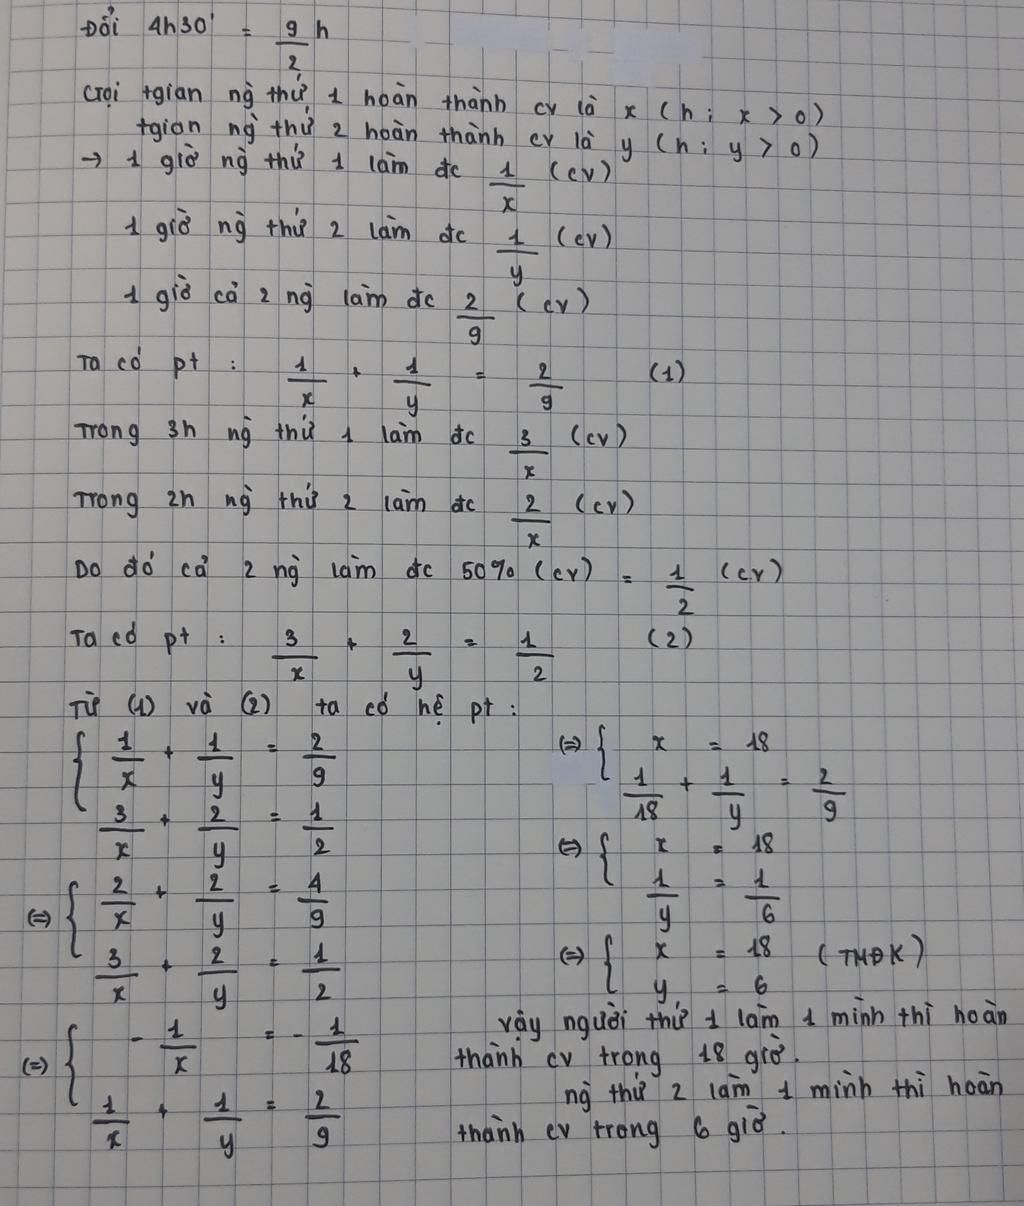 Đổi 4h30' = 9/2 h
Gọi tgian ng̀ thứ 1 hoàn thành cv là x (h; x > 0)
tgian ng̀ thứ 2 hoàn thành cv là y (h; y > 0)
→ 1 giờ ng̀ thứ 1 làm đc 1/x (cv)
1 giờ ng̀ thứ 2 làm đc 1/y (cv)
1 giờ cả 2 ng̀ làm đc 2/9 (cv)
Ta có pt : 1/x + 1/y = 2/9 (1)
Trong 3h ng̀ thứ 1 làm đc 3/x (cv)
Trong 2h ng̀ thứ 2 làm đc 2/x (cv)
Do đó cả 2 ng̀ làm đc 50% (cv) = 1/2 (cv)
Ta có pt : 3/x + 2/y = 1/2 (2)
Từ (1) và (2) ta có hệ pt :
{ 1/x + 1/y = 2/9
3/x + 2/y = 1/2
(=) { 2/x + 2/y = 4/9
3/x + 2/y = 1/2
(=) { - 1/x = - 1/18
1/x + 1/y = 2/9
(=) { x = 18
1/18 + 1/y = 2/9
(=) { x = 18
1/y = 1/6
(=) { x = 18 (TMĐK)
y = 6
Vậy người thứ 1 làm 1 mình thì hoàn
thành cv trong 18 giờ.
ng̀ thứ 2 làm 1 mình thì hoàn
thành cv trong 6 giờ.